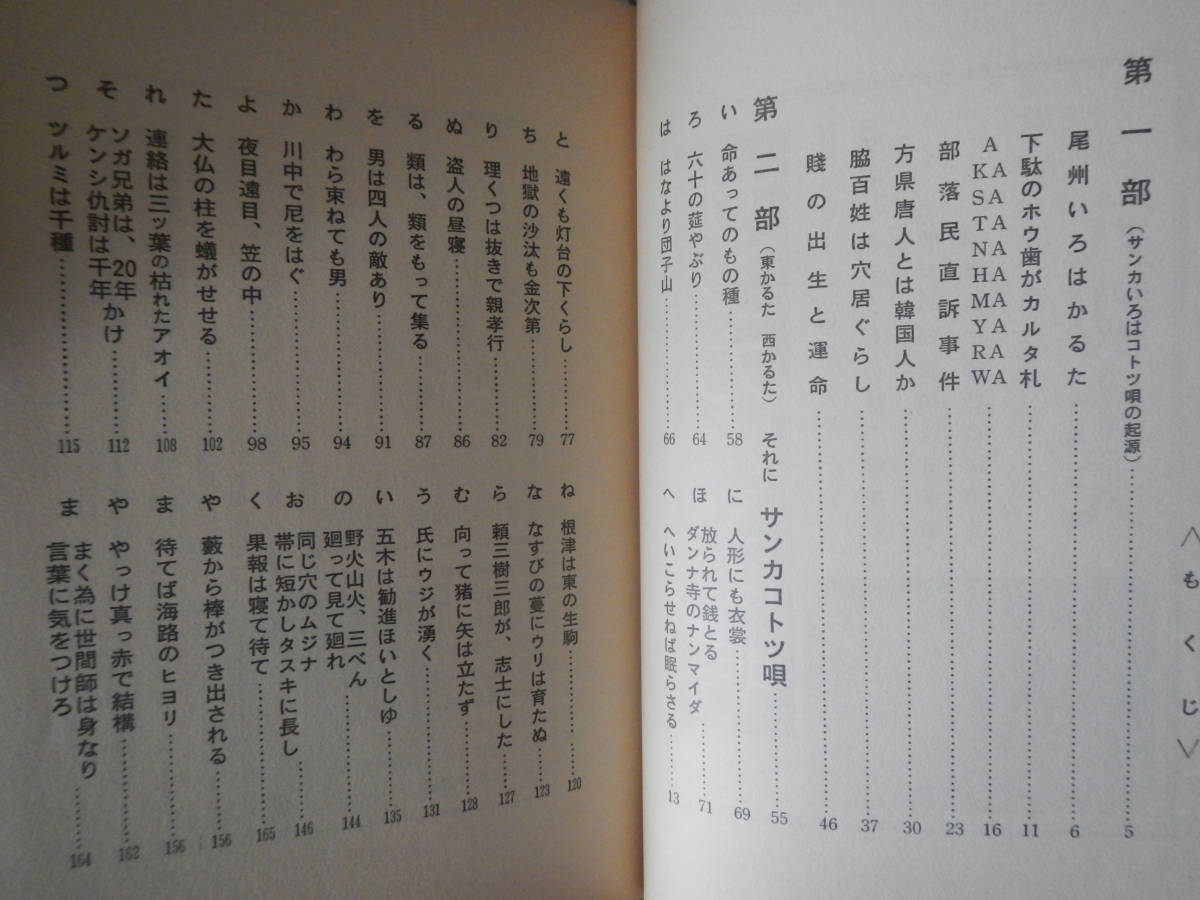 〈もくじ〉
第一部（サンカいろはコトツ唄の起源）……5
尾州いろはかるた……6
下駄のホウ歯がカルタ札……11
AAAAAAAAA
AKSTNHMYRW……16
部落民直訴事件……23
方県唐人とは韓国人か……30
脇百姓は穴居ぐらし……37
賤の出生と運命……46
第二部（東かるた 西かるた）それに サンカコトツ唄……55
い 命あってのもの種……58
ろ 六十の莚やぶり……64
は はなより団子山……66
に 人形にも衣裳……69
ほ 放られて銭とる
ダンナ寺のナンマイダ……71
へ へいこらせねば眠らさる……13
と 遠くも灯台の下くらし……77
ち 地獄の沙汰も金次第……79
り 理くつは抜きで親孝行……82
ぬ 盗人の昼寝……86
る 類は、類をもって集る……87
を 男は四人の敵あり……91
わ わら束ねても男……94
か 川中で尼をはぐ……95
よ 夜目遠目、笠の中……98
た 大仏の柱を蟻がせせる……102
れ 連絡は三ッ葉の枯れたアオイ……108
そ ソガ兄弟は、20年
ケンシ仇討は千年かけ……112
つ ツルミは千種……115
ね 根津は東の生駒……120
な なすびの蔓にウリは育たぬ……123
ら 頼三樹三郎が、志士にした……127
む 向って猪に矢は立たず……128
う 氏にウジが湧く……131
い 五木は勧進ほいとしゆ……135
の 野火山火、三べん
廻って見て廻れ……144
お 同じ穴のムジナ
帯に短かしタスキに長し……146
く 果報は寝て待て……165
や 藪から棒がつき出される……156
ま 待てば海路のヒヨリ……156
や やっけ真っ赤で結構……162
ま まく為に世間師は身なり
言葉に気をつけろ……164